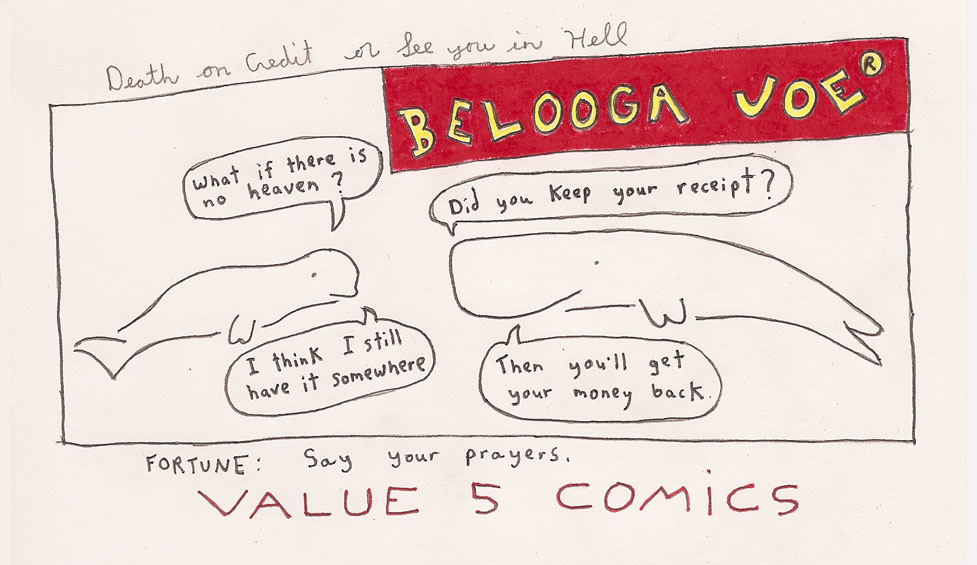 Death on Credit or See you in Hell
BELOOGA JOE®
What if there is
no heaven?
Did you keep your receipt?
I think I still
have it somewhere
Then you'll get
your money back.
FORTUNE: Say your prayers.
VALUE 5 COMICS